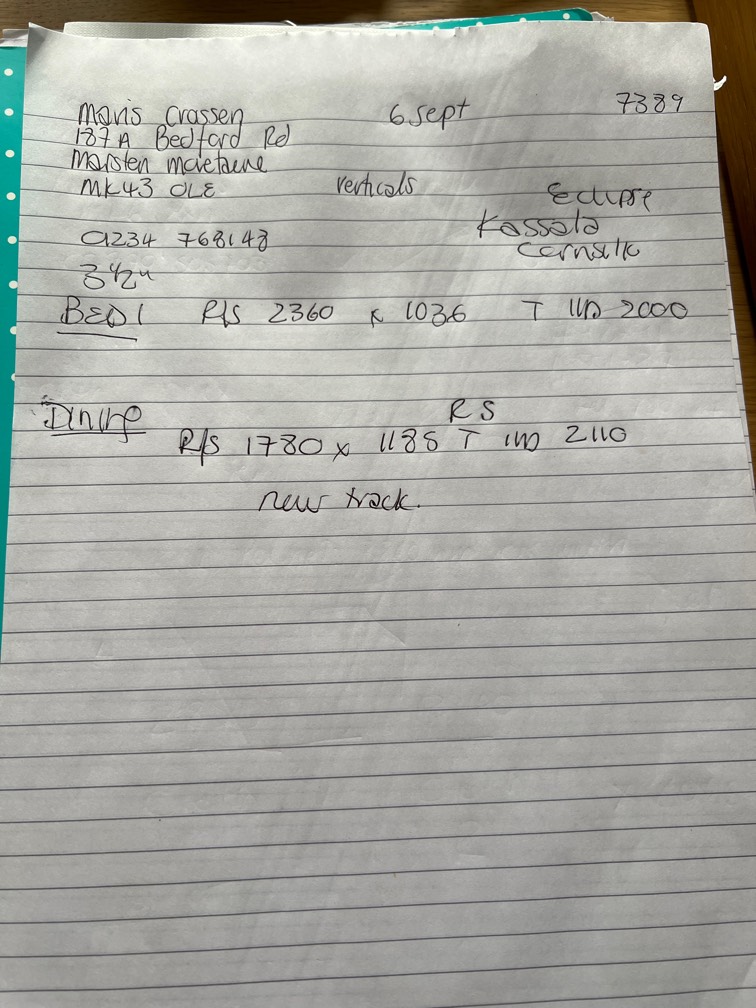 Mavis Crassen 6 Sept 7389
187A Bedford Rd
Marsten
MK43 0LE Verticals Eclipse
Kassala
Cornsilk
01234 768148
3½"
BED 1 R/S 2360 x 1036 T 2000
Dining RS
R/S 1780 x 1185 T 2110
new track.